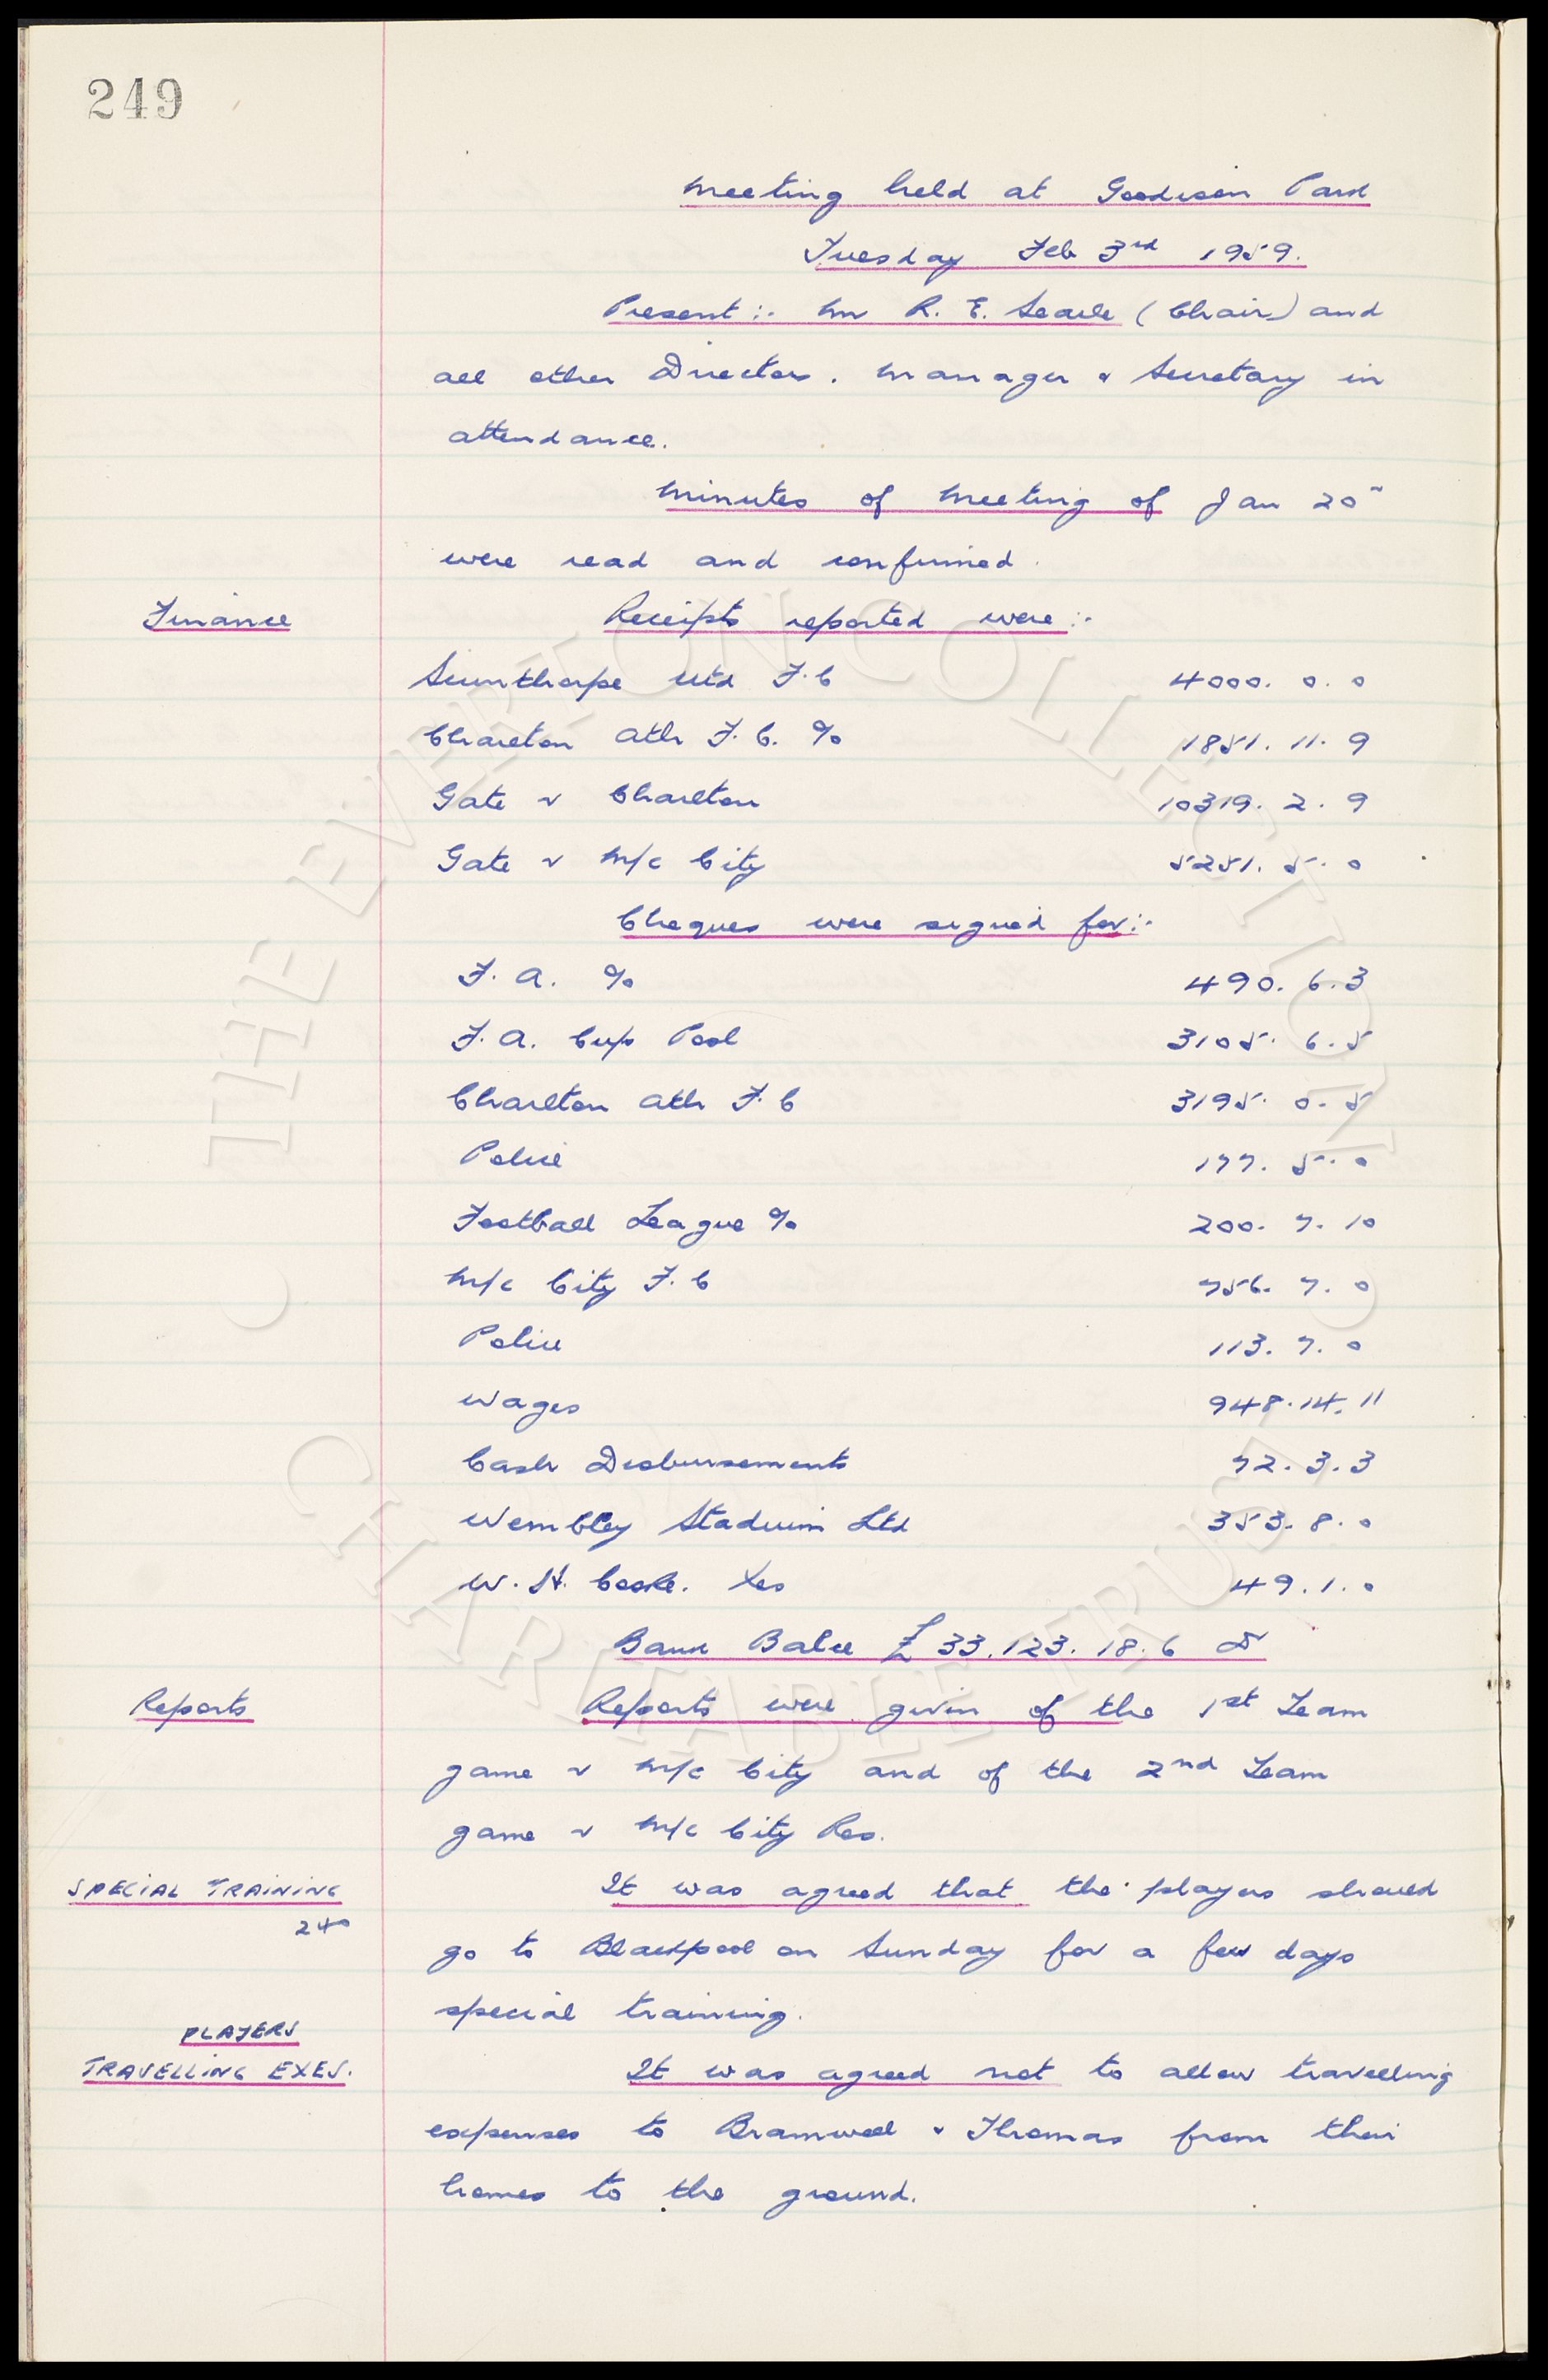 249
Meeting held at Goodison Park
Tuesday Feb 3rd 1959.
Present :- Mr R. E. Searle (Chair) and
all other Directors. Manager & Secretary in
attendance.
Minutes of Meeting of Jan 20"
were read and confirmed.
Finance Receipts reported were :-
Scunthorpe Utd F.C 4000. 0. 0
Charlton Ath F.C. % 1851. 11. 9
Gate v Charlton 10319. 2. 9
Gate v M/c City 5251. 5. 0
Cheques were signed for :-
F.A. % 490. 6. 3
F.A. Cup Pool 3105. 6. 5
Charlton Ath F.C 3195. 0. 5
Police 177. 5. 0
Football League % 200. 7. 10
M/c City F.C 756. 7. 0
Police 113. 7. 0
Wages 948. 14. 11
Cash Disbursements 72. 3. 3
Wembley Stadium Ltd 353. 8. 0
W. H. Cooke. 49. 1. 0
Bank Balce £33,123. 18. 6
Reports Reports were given of the 1st Team
game v M/c City and of the 2nd Team
game v M/c City Res.
SPECIAL TRAINING It was agreed that the players should
240
go to Blackpool on Sunday for a few days
special training.
PLAYERS
TRAVELLING EXES. It was agreed not to allow travelling
expenses to Bramwell & Thomas from their
homes to the ground.
THE EVERTON COLLECTION
CHARITABLE TRUST